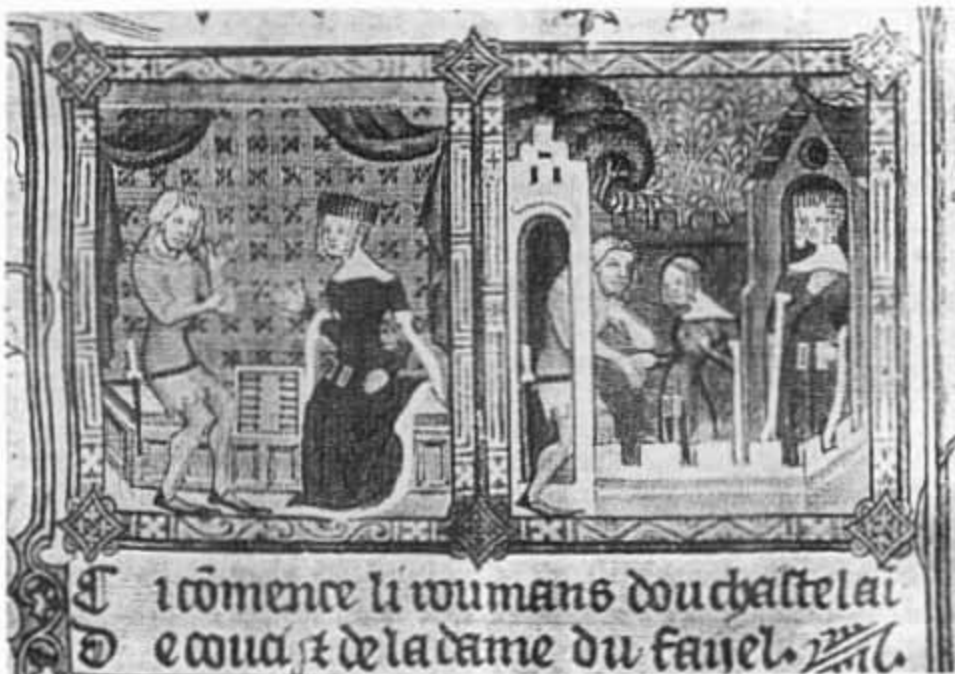 Ci cōmence li roumans dou chastelai
De couci & de la dame du faiel.